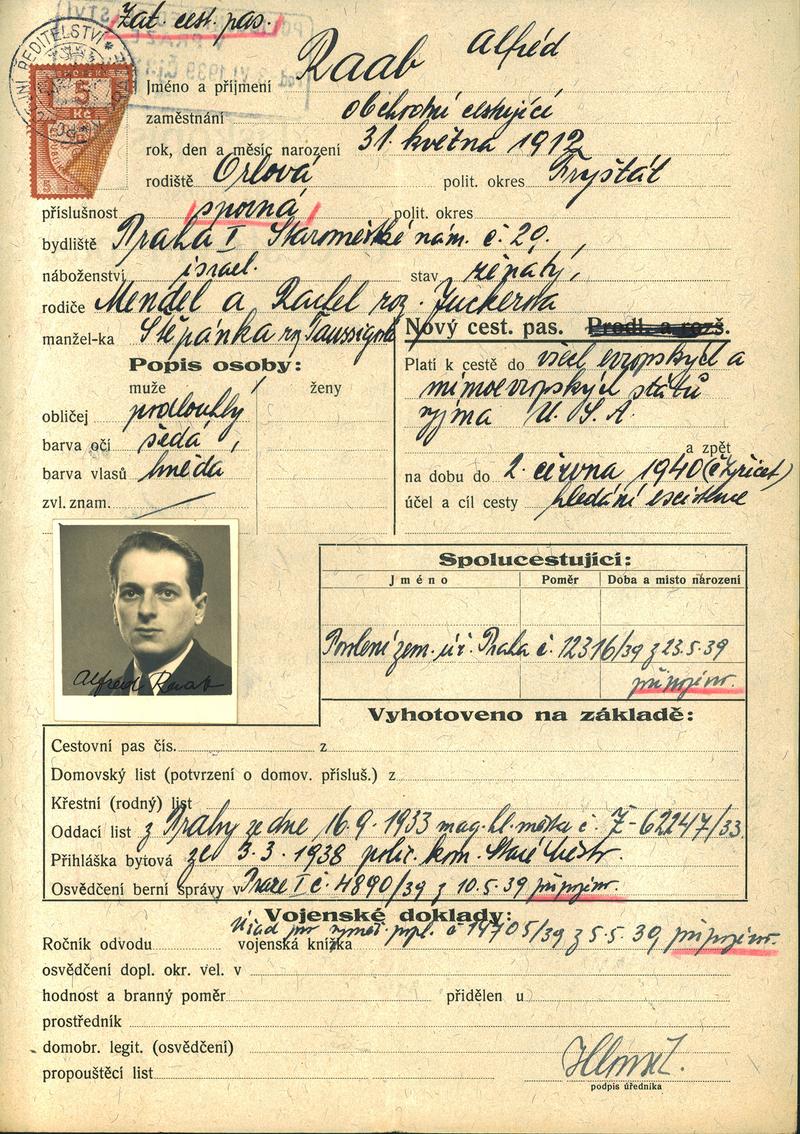 Zat. cest. pas.
ŘEDITELSTVÍ
5
Kč
Jméno a příjmení Raab Alfréd
zaměstnání obchodní cestující
rok, den a měsíc narození 31. května 1912
rodiště Orlová polit. okres Fryštát
příslušnost sporná polit. okres
bydliště Praha I Staroměstské nám. č. 20.
náboženství israel. stav ženatý,
rodiče Mendel a Rachel roz. Zuckerova
manžel-ka Štěpánka roz Taussigová
Nový cest. pas. Prodl. a rozš.
Popis osoby:
muže ženy
obličej prodlouhlý
barva očí šedá
barva vlasů hnědá
zvl. znam.
Platí k cestě do všech evropských a
mimoevropských států
vyjma U. S. A.
a zpět
na dobu do 2. června 1940 (čtyřicet)
účel a cíl cesty hledání existence
Spolucestující:
Jméno Poměr Doba a místo narození
Povolení zem. úř. Praha č. 12316/39 z 23.5.39
připojeno.
Alfred Raab
Vyhotoveno na základě:
Cestovní pas čís. z
Domovský list (potvrzení o domov. přísluš.) z
Křestní (rodný) list
Oddací list z Prahy ze dne 16.9.1933 mag. hl. města č. Ž-62247/33.
Přihláška bytová ze 3.3.1938 polic. kom. Staré Město.
Osvědčení berní správy v Praze I č. 4890/39 z 10.5.39 připojeno.
Vojenské doklady:
Úřad pro vyměř. popl. č 14705/39 z 5.5.39 připojeno.
Ročník odvodu vojenská knížka
osvědčení dopl. okr. vel. v
hodnost a branný poměr přidělen u
prostředník
domobr. legit. (osvědčení)
propouštěcí list
podpis úředníka